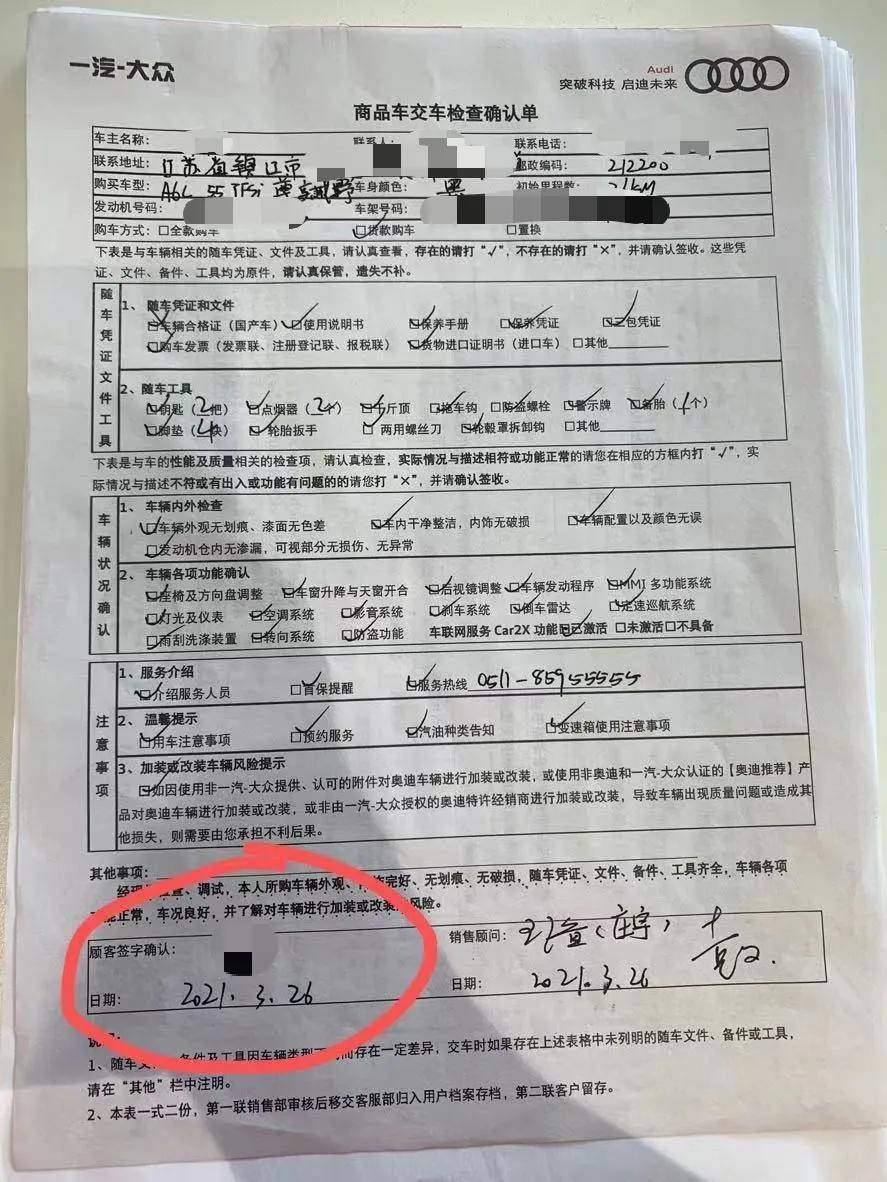 一汽-大众
Audi
突破科技 启迪未来
商品车交车检查确认单
车主名称: 联系人: 联系电话:
联系地址: 江苏省镇江市 邮政编码: 212200
购买车型: A6L 55 TFSi 车身颜色: 黑 初始里程数: 21KM
发动机号码: 车架号码:
购车方式: □全款购车 ☑贷款购车 □置换
下表是与车辆相关的随车凭证、文件及工具，请认真查看，存在的请打“√”，不存在的请打“×”，并请确认签收。这些凭
证、文件、备件、工具均为原件，请认真保管，遗失不补。
随车凭证文件工具
1、随车凭证和文件
☑车辆合格证（国产车） ☑使用说明书 ☑保养手册 ☑保养凭证 ☑三包凭证
☑购车发票（发票联、注册登记联、报税联） ☑货物进口证明书（进口车） □其他
2、随车工具
☑钥匙（2把） ☑点烟器（2个） ☑千斤顶 ☑拖车钩 ☑防盗螺栓 ☑警示牌 ☑备胎（1个）
☑脚垫（4块） ☑轮胎扳手 ☑两用螺丝刀 ☑轮毂罩拆卸钩 □其他
下表是与车的性能及质量相关的检查项，请认真检查，实际情况与描述相符或功能正常的请您在相应的方框内打“√”，实
际情况与描述不符或有出入或功能有问题的的请您打“×”，并请确认签收。
车辆状况确认
1、车辆内外检查
☑车辆外观无划痕、漆面无色差 ☑车内干净整洁，内饰无破损 ☑车辆配置以及颜色无误
☑发动机仓内无渗漏，可视部分无损伤、无异常
2、车辆各项功能确认
☑座椅及方向盘调整 ☑车窗升降与天窗开合 ☑后视镜调整 ☑车辆发动程序 ☑MMI 多功能系统
☑灯光及仪表 ☑空调系统 ☑影音系统 ☑刹车系统 ☑倒车雷达 ☑定速巡航系统
☑雨刮洗涤装置 ☑转向系统 ☑防盗功能 车联网服务 Car2X 功能 ☑已激活 □未激活 □不具备
注意事项
1、服务介绍
☑介绍服务人员 ☑首保提醒 ☑服务热线 0511-85955555
2、温馨提示
☑用车注意事项 ☑预约服务 ☑汽油种类告知 ☑变速箱使用注意事项
3、加装或改装车辆风险提示
☑如因使用非一汽-大众提供、认可的附件对奥迪车辆进行加装或改装，或使用非奥迪和一汽-大众认证的【奥迪推荐】产
品对奥迪车辆进行加装或改装，或非由一汽-大众授权的奥迪特许经销商进行加装或改装，导致车辆出现质量问题或造成其
他损失，则需要由您承担不利后果。
其他事项:
查、调试，本人所购车辆外观、完好、无划痕、无破损，随车凭证、文件、备件、工具齐全，车辆各项
能正常，车况良好，并了解对车辆进行加装或改装风险。
顾客签字确认: 销售顾问:
日期: 2021.3.26 日期: 2021.3.26
1、随车文件、备件及工具因车辆类型不同而存在一定差异，交车时如果存在上述表格中未列明的随车文件、备件或工具，
请在“其他”栏中注明。
2、本表一式二份，第一联销售部审核后移交客服部归入用户档案存档，第二联客户留存。